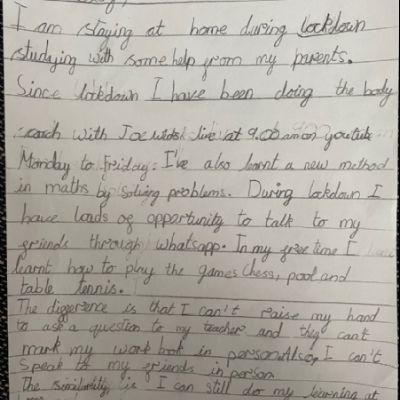 I am staying at home during lockdown
studying with some help from my parents.
Since lockdown I have been doing the body
coach with Joe wicks live at 9.00 am on youtube
Monday to Friday. I've also learnt a new method
in maths by solving problems. During lockdown I
have loads of opportunity to talk to my
friends through whatsapp. In my free time I
learnt how to play the games Chess, pool and
table tennis.
The difference is that I can't raise my hand
to ask a question to my teacher and they can't
mark my work book in person. Also, I can't
Speak to my friends in person
The similarity is I can still do my learning at